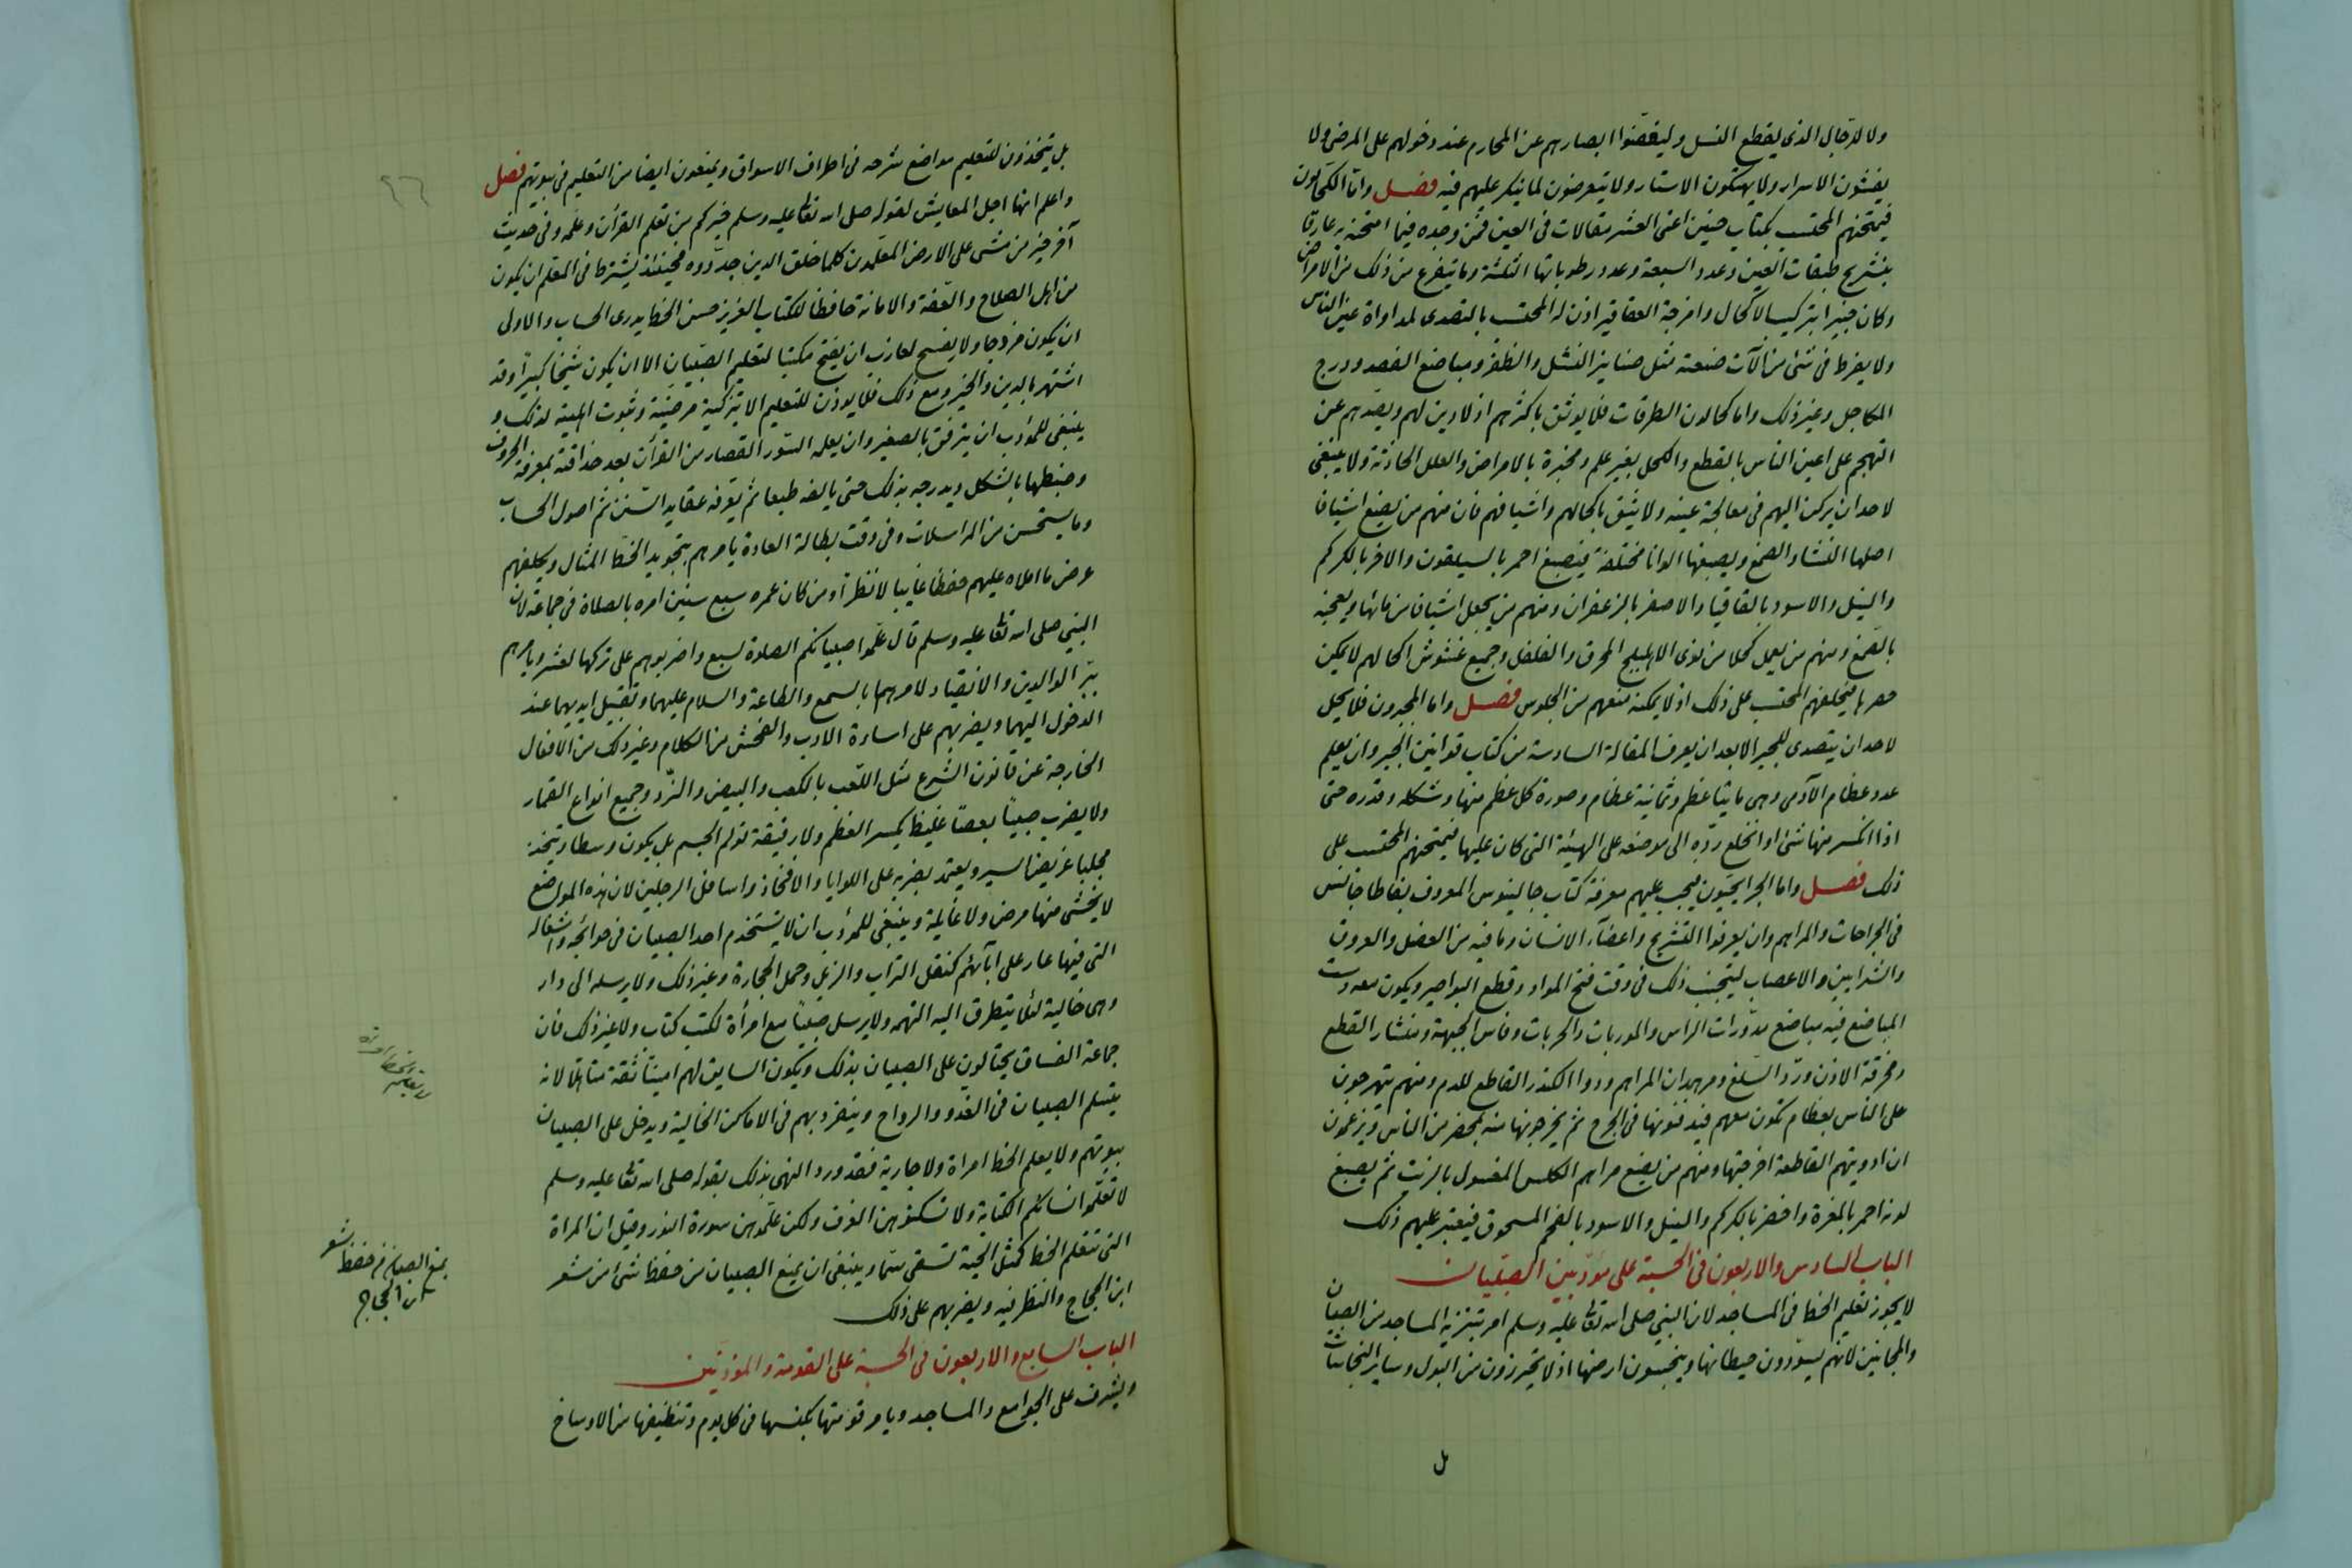 ولا للرجال الذى يقطع النسل وليغضّوا ابصارهم عن المحارم عند دخولهم على المرضى ولا
يفشون الاسرار ولا يهتكون الاستار ولا يتعرضون لما ينكر عليهم فيه فصل واما الكحّالون
فيمتحنهم المحتسب بكتاب حنين اعنى العشر مقالات فى العين فمن وجده فيما امتحنه به عارفا
بتشريح طبقات العين وعدد السبعة وعدد رطوباتها الثلثة وما يتفرع من ذلك من الامراض
وكان خبيرا بتركيب الاكحال وامزجة العقاقير اذن له المحتسب بالتصدى لمداواة عين الناس
ولا يفرط فى شئ من آلات صنعته مثل صنانير النشل والظفر ومباضع الفصد ودرج
المكاحل وغير ذلك واما كحالون الطرقات فلا يوثق باكثرهم اذ لا دين لهم ويصدهم عن
التهجم على اعين الناس بالقطع والكحل بغير علم ومخبرة بالامراض والعلل الحادثة ولا ينبغى
لاحد ان يركن اليهم فى معالجة عينه ولا يثق باكحالهم واشيافهم فان منهم من يضع اشيافا
اصلها النشا والصمغ ويصبغها الوانا مختلفة فيصبغ احمر بالسيلقون والاخر بالكركم
والنيل والاسود بالقاقيا والاصفر بالزعفران ومنهم من يجعل اشيافا من ماميثا ويعجنه
بالصّمغ ومنهم من يعمل كحلا من نوى الاهليلج المحرق والفلفل وجميع غشوش اكحالهم لا يمكن
حصرها فيحلفهم المحتسب على ذلك اذ لا يمكنه منعهم من الجلوس فصل واما المجبرون فلا يحل
لاحد ان يتصدى للجبر الا بعد ان يعرف المقالة السادسة من كتاب قوانين الجبر وان يعلم
عدد عظام الآدمى وهى مايتا عظم وثمانية عظام وصورة كل عظم منها وشكله وقدره حتى
اذا انكسر منها شئ او انخلع ردّه الى موضعه على الهيئة التى كان عليها فيمتحنهم المحتسب على
ذلك فصل واما الجرايحيّون فيجب عليهم معرفة كتاب جالينوس المعروف بقاطاجانس
فى الجراحات والمراهم وان يعرفوا التشريح واعضآء الانسان وما فيه من العضل والعروق
والشرايين والاعصاب ليتجنب ذلك فى وقت فتح المواد وقطع البواصير ويكون معه دست
المباضع فيه مباضع مدورات الراس والموربات والحربات وفاس الجبهة ومنشار القطع
ومخرقة الاذن وورد السّلغ ومرهمدان المراهم ودواء الكندر القاطع للدم ومنهم يتهرجون
على الناس بعظام تكون معهم فيدفنونها فى الجرح ثم يخرجونها منه بمحضر من الناس ويزعمون
ان ادويتهم القاطعة اخرجتها ومنهم من يضع مراهم الكلس المغسول بالزيت ثم يصبغ
لونه احمر بالمغرة واخضر بالكركم والنيل والاسود بالفحم المسحوق فيعتبر عليهم ذلك
الباب السادس والاربعون فى الحسبة على مؤدّبين الصبيان
لا يجوز تعليم الخط فى المساجد لان النبى صلى الله تعا عليه وسلم امر بتنزيه المساجد من الصبيان
والمجانين لانهم يسوّدون حيطانها وينجسون ارضها اذ لا يتحرزون من البول وساير النجاسات
بل
بل يتخذون للتعليم مواضع شرحه فى اطراف الاسواق ويمنعون ايضا من التعليم فى بيوتهم فصل
واعلم انها اجل المعايش لقوله صلى الله تعا عليه وسلم خيركم من تعلم القرآن وعلمه وفى حديث
آخر خير من مشى على الارض المعلّمون كلما خلق الدين جدّدوه فحينئذ يشترط فى المعلم ان يكون
من اهل الصلاح والعّفة والامانة حافظا للكتاب العزيز حسن الخط يدرى الحساب والاولى
ان يكون مزوجا ولا يفسح لعازب ان يفتح مكتبا لتعليم الصّبيان الا ان يكون شيخا كبيرا وقد
اشتهر بالدين والخير ومع ذلك فلا يوذن للتعليم الا بتزكية مرضيّة وثبوت اهليته لذلك و
ينبغى للمؤدب ان يترفق بالصغير وان يعلمه السّور القصار من القرآن بعد حذاقته بمعرفة الحروف
وضبطها بالشكل ويدرجه بذلك حتى يالفه طبعا ثم يعرفه عقايد السّنن ثم اصول الحساب
وما يستحسن من المراسلات وفى وقت بطالة العادة يامرهم بتجويد الخطّ المثال ويكلفهم
عرض ما املاه عليهم حفظا غايبا لا نظرا ومن كان عمره سبع سنين امره بالصلاة فى جماعة لان
النبى صلى الله تعا عليه وسلم قال علّموا صبيانكم الصلوة لسبع واضربوهم على تركها لعشر ويامرهم
ببّر الوالدين والانقياد لامرهما بالسمع والطاعة والسلام عليهما وتقبيل ايديهما عند
الدخول اليهما ويضربهم على اساءة الادب والفحش من الكلام وغير ذلك من الافعال
الخارجة عن قانون الشرع مثل اللّعب بالكعب والبيض والنّرد وجميع انواع القمار
ولا يضرب صبيا بعصا غليظ يكسر العظم ولا رقيقة تؤلم الجسم بل يكون وسطا ويتخذ
مجلبا عريض السير ويعتمد بضربه على اللوايا والافخاذ واسافل الرجلين لان هذه المواضع
لا يخشى منها مرض ولا غايلة وينبغى للمؤدب ان لا يستخدم احد الصبيان فى حوائجه واشغاله
التى فيها عار على ابآئهم كنقل التراب والزبل وحمل الحجارة وغير ذلك ولا يرسله الى دار
وهى خالية لئلا يتطرق اليه التهمه ولا يرسل صبيا مع امرأة لكتب كتاب ولا غير ذلك فان
جماعة الفساق يحتالون على الصبيان بذلك ويكون السايق لهم امينا ثقة متاهلا لانه
يتسلم الصبيان فى الغدو والرواح وينفرد بهم فى الاماكن الخالية ويدخل على الصبيان
بيوتهم ولا يعلم الخط امراة ولا جارية فقد ورد النهى بذلك بقوله صلى الله تعا عليه وسلم
لا تعلّموا نسائكم الكتابة ولا تسكنوهن الغرف ولكن علّموهن سورة النور وقيل ان المراة
التى تتعلم الخط كمثل الحية تسقى سمّا وينبغى ان يمنع الصبيان من حفظ شئ من شعر
ابن الحجاج والنظر فيه ويضربهم على ذلك
الباب السابع والاربعون فى الحسبة على القومة والمؤذنين
ويشرف على الجوامع والمساجد ويامر قومتها بكنسها فى كل يوم وتنظيفها من الاوساخ
٩٦
لا يعلم الخط امراة
يمنع الصبيان من حفظ شعر
ابن الحجاج